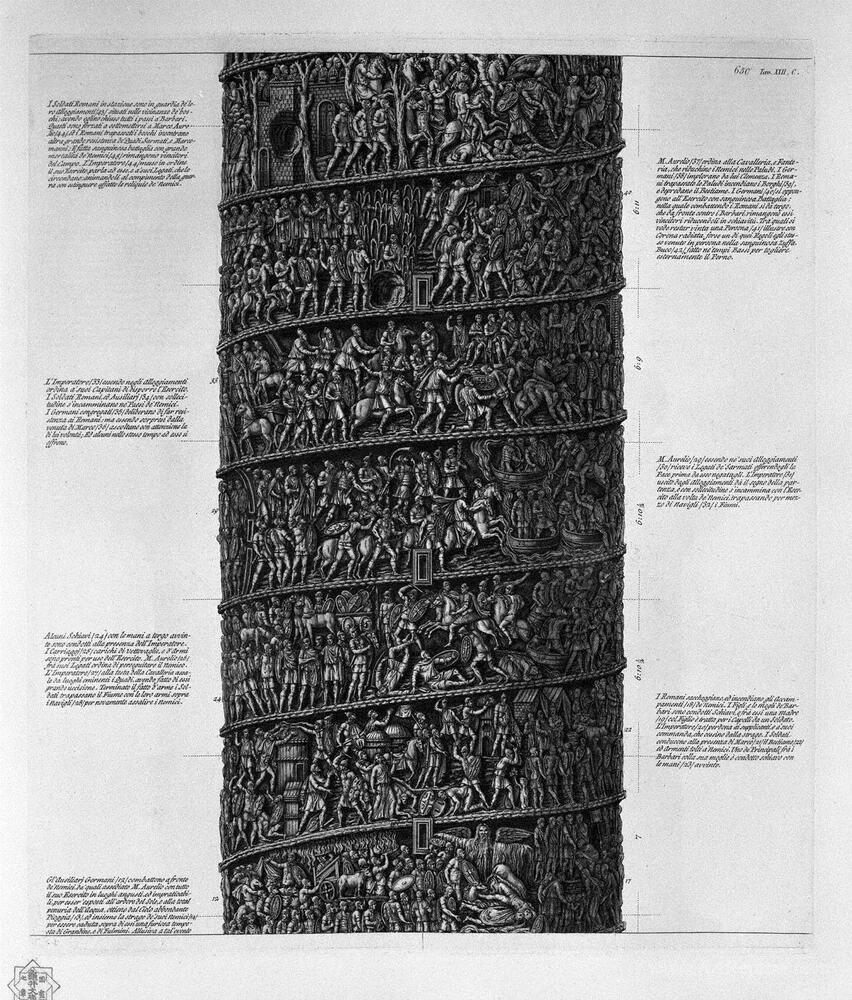 650 Tav. XIII. C.
I Soldati Romani in stazione sono in guardia de' lo-
ro alloggiamenti /43/ situati nelle vicinanze de' bos-
chi: avendo eglino chiuso tutti i passi a' Barbari.
Questi sono forzati a sottomettersi a Marco Aure-
lio /44/, ed i Romani trapassati i boschi incontrano
altra grande resistenza di Quadi, Sarmati, e Marco-
manni: E' fatta sanguinosa battaglia con grande
mortalità de' Nemici, /45/ rimangono vincitori
del Campo. L'Imperatore /44/ messo in ordine
il suo Esercito parla ad esso, e a' suoi Legati, che lo
circondano, animandoli al compimento della guer-
ra con estinguere affatto le reliquie de' Nemici.
M. Aurelio /37/ ordina alla Cavalleria, e Fante-
ria, che riduchino i Nemici nelle Paludi. I Ger-
mani /38/ implorano da lui Clemenza. I Roma-
ni trapassate le Paludi incendiano i Borghi /39/,
e depredano il Bestiame. I Germani /40/ si oppon-
gono all'Esercito con sanguinosa Battaglia:
nella quale combattendo i Romani si da tergo,
che da fronte contro i Barbari, rimangono essi
vincitori riducendoli in ischiavitù. Tra' quali si
vede restar vinta una Persona /41/ illustre con
Corona radiata, forse un di quei Regoli egli stes-
so venuto in persona nella sanguinosa Zuffa.
Buco /42/ fatto ne' tempi Bassi per togliere
esternamente il Perno.
L'Imperatore /33/ essendo negli alloggiamenti
ordina a' suoi Capitani di disporre l'Esercito.
I Soldati Romani, ed Ausiliarj /34/ con solleci-
tudine s'incamminano ne' Paesi de' Nemici.
I Germani congregati /35/ deliberano di far resi-
stenza ai Romani: ma essendo sorpresi dalla
venuta di Marco /36/ ascoltano con attenzione la
di lui volontà; Ed alcuni nello stesso tempo ad esso si
offrono.
M. Aurelio /29/ essendo ne' suoi alloggiamenti
/30/ riceve i Legati de' Sarmati offerendogli la
Pace prima da esso negatagli. L'Imperatore /31/
uscito dagli Alloggiamenti dà il segno della par-
tenza, e con sollecitudine s'incammina con l'Eser-
cito alla volta de' Nemici, trapassando per mez-
zo di Navigli /32/ i Fiumi.
Alcuni Schiavi /24/ con le mani a tergo avvin-
te sono condotti alla presenza dell'Imperatore.
I Carriaggi /25/ carichi di vettovaglie, e d'Armi
sono pronti per uso dell'Esercito. M. Aurelio /26/
frà suoi Legati ordina di perseguitare il Nemico.
L'Imperatore /27/ alla testa della Cavalleria assa-
le da luoghi eminenti i Quadi, avendo fatto di essi
grande uccisione. Terminato il fatto d'armi i Sol-
dati trapassano il Fiume con le loro armi sopra
i Navigli /28/ per novamente assalire i nemici.
I Romani saccheggiano, ed incendiano gli Accam-
pamenti /18/ de' Nemici. I Figli, e le mogli de' Bar-
bari sono condotti Schiavi, e frà essi una Madre
/19/ col Figlio è tratta per i Capelli da un Soldato.
L'Imperatore /20/ perdona ai supplicanti, e a' suoi
commanda, che cessino dalla strage. I Soldati
conducono alla presenza di Marco /21/ il Bestiame /22/
ed Armenti tolti a' Nemici. Uno de' Principali frà i
Barbari colla sua moglie è condotto schiavo con
le mani /23/ avvinte.
Gl'Ausiliarj Germani /12/ combattono a fronte
de' Nemici, da' quali assediato M. Aurelio con tutto
il suo Esercito in luoghi angusti, ed impraticabi-
li, per esser' esposti all'ardore del Sole, e alla total
penuria dell'Acqua, ottiene dal Cielo abbondante
Pioggia /13/, ed insieme la strage de' suoi Nemici /14/
per essere caduta sopra di essi una furiosa tempe-
sta di Grandine, e di Fulmini. Allusiva a tal' evento
42
33
29
24
22
17
12
7